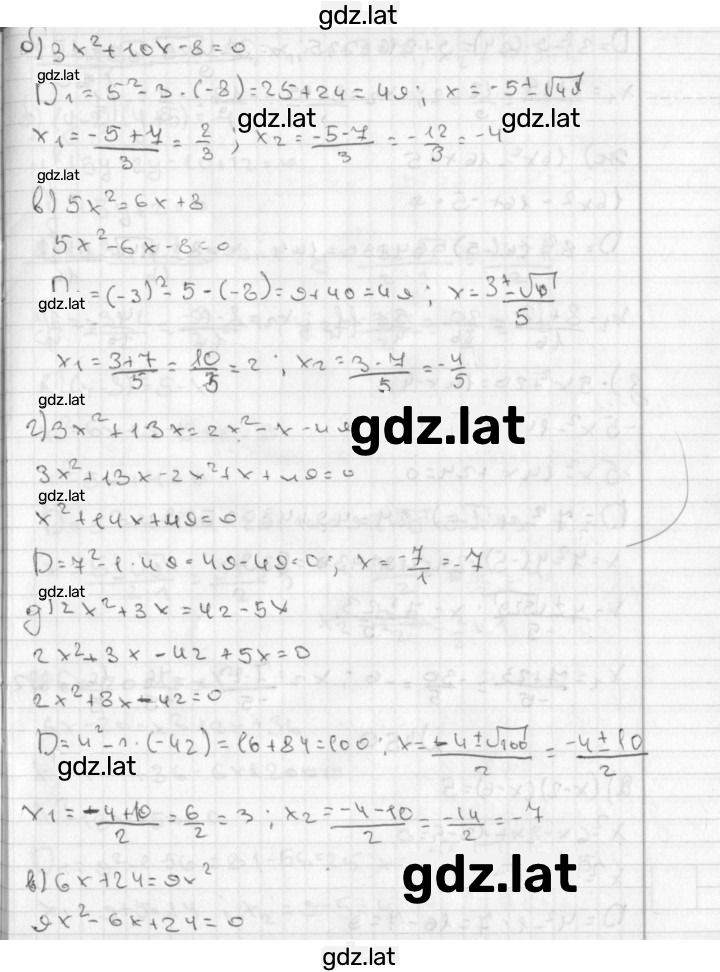 gdz.lat
б) 3x²+10x-8=0
gdz.lat
D₁=5²-3·(-8)=25+24=49; x=-5±√49
gdz.lat
x₁=(-5+7)/3=2/3; x₂=(-5-7)/3=-12/3=-4
gdz.lat
gdz.lat
в) 5x²=6x+8
5x²-6x-8=0
D₁=(-3)²-5-(-8)=9+40=49; x=(3±√49)/5
gdz.lat
x₁=(3+7)/5=10/5=2; x₂=(3-7)/5=-4/5
gdz.lat
г) 3x²+13x=2x²-x-49
gdz.lat
3x²+13x-2x²+x+49=0
gdz.lat
x²+14x+49=0
D=7²-1·49=49-49=0; x=-7/1=-7
gdz.lat
д) 2x²+3x=42-5x
2x²+3x-42+5x=0
2x²+8x-42=0
D=4²-2·(-42)=16+84=100; x=(-4±√100)/2=(-4±10)/2
gdz.lat
x₁=(-4+10)/2=6/2=3; x₂=(-4-10)/2=-14/2=-7
gdz.lat
в) 6x+24=9x²
9x²-6x+24=0
gdz.lat